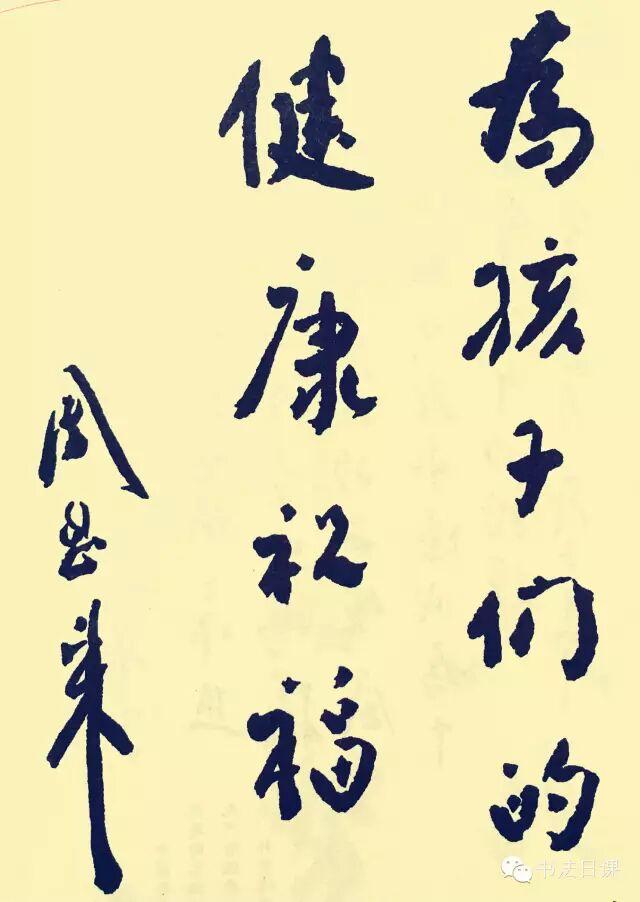 為孩子们的
健康祝福
周恩来
书法日课